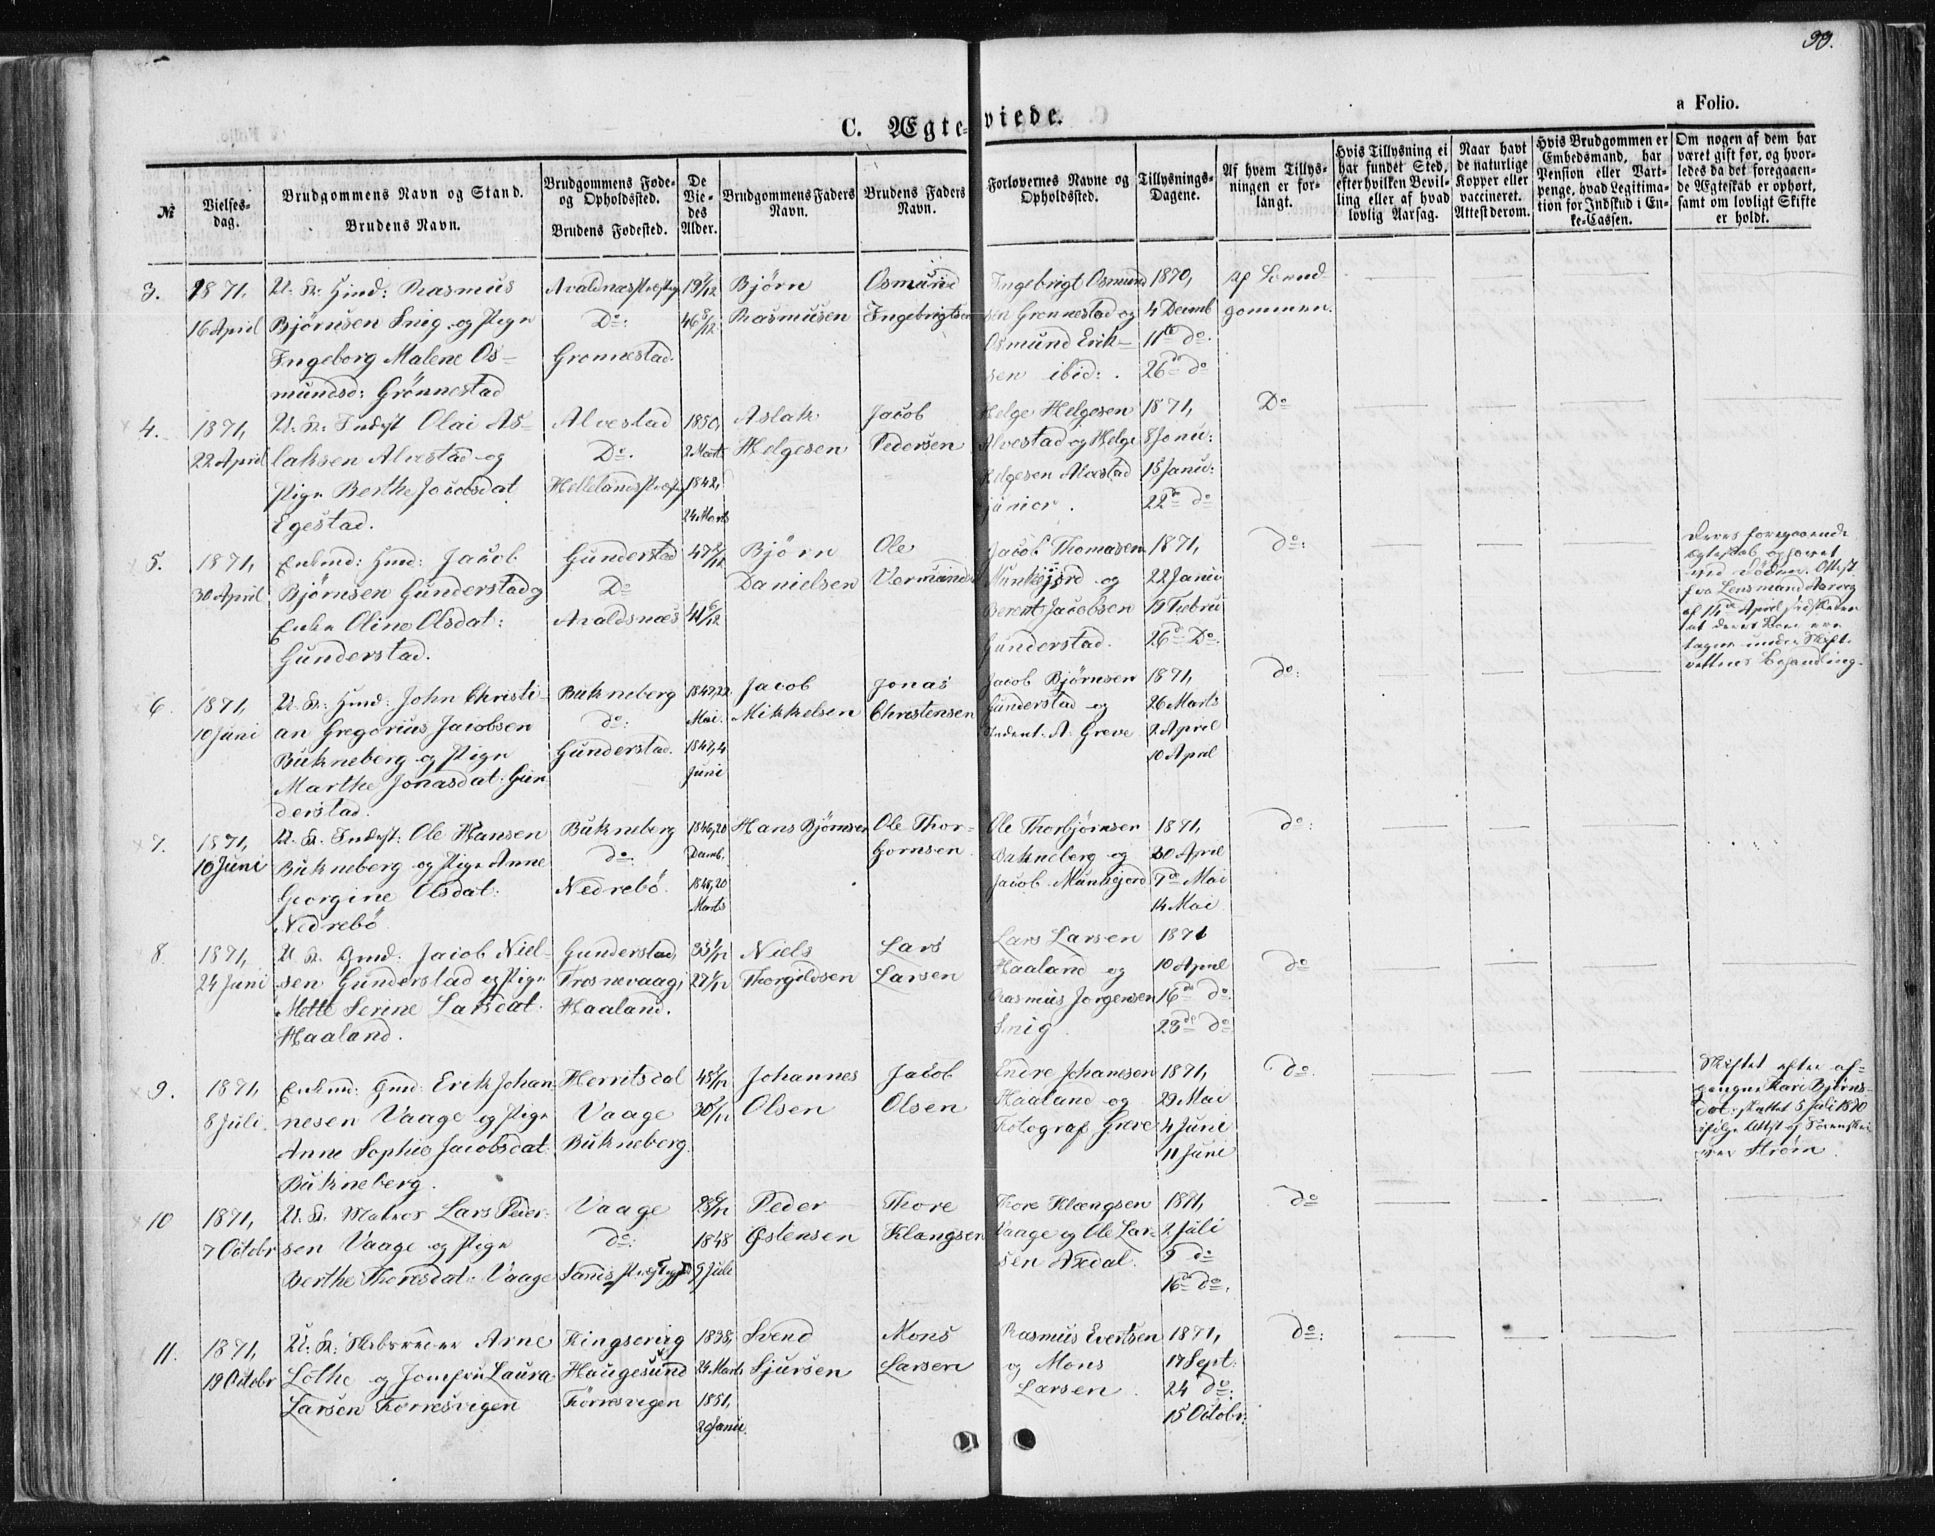 99.
a Folio.
C. Ægte-viede.
№
Vielses-dag.
Brudgommens Navn og Stand.
Brudens Navn.
Brudgommens Føde- og Opholdssted.
Brudens Fødested.
De Vie-des Alder.
Brudgommens Faders Navn.
Brudens Faders Navn.
Forlovernes Navne og Opholdssted.
Tillysnings-Dagene.
Af hvem Tillys-ningen er for-langt.
Hvis Tillysning ei har fundet Sted, efter hvilken Bevil-ling eller af hvad lovlig Aarsag.
Naar havt de naturlige Kopper eller vaccineret. Attest derom.
Hvis Brudgommen er Embedsmand, har Pension eller Vart-penge, hvad Legitima-tion for Indskud i En-ke-Cassen.
Om nogen af dem har været gift før, og hvor-ledes da det foregaaen-de Ægteskab er ophørt, samt om lovligt Skifte er holdt.
3.
1871,
16 April
U. K. Gmd: Rasmus
Bjørnsen Snig og Pige
Ingeborg Malene Os-
mundsd: Grønnestad
Avaldnæs
Do:
Grønnestad
Bjørn
Rasmusen
Osmund
Ingebrigtsen
Ingebrigt Osmund
sen Grønnestad og
Osmund Erik-
sen ibid:
1870,
4 Decmb
11te do
26de do
4.
1871,
22 April
Olai As-
laksen Alvestad og
Pige Berthe Jacobsdat
Egestad.
Alvestad
Do.
1850,
2 Marts
1842,
24 Marts
Aslak
Helgesen
Jacob
Pedersen
Helge Helgesen
Alvestad og Helge
Helgesen Alvestad
junior.
1871,
8 Janu:
15 Janu:
22de do
Do
5.
1871,
30 April
Enkmd: Gmd: Jacob
Bjørnsen Gunderstad og
Enke Oline Olsdat:
Gunderstad.
Gunderstad
Do
Avaldsnæs
Bjørn
Danielsen
Ole
Jacob Thomasen
Munkejord og
Berent Jacobsen
Gunderstad.
1871,
22 Janu
19 Febru
26de Do.
do:
Deres foregaaende
Ægteskab ophøret
ved Døden. Attest
fra Lensmand
af 14de April
Behandling.
6.
1871,
10 Juni
U. K. Gmd: John Christi-
an Gregorius Jacobsen
Bukneberg og Pige
Marthe Jonasdat: Gun
derstad.
Bukneberg
do:
Gunderstad.
1847, 22
Mai.
1847, 4
Juni
Jacob
Mikkelsen
Jonas
Christensen
Jacob Bjørnsen
Gunderstad og
Student A. Greve
1871,
26 Marts
2 April
10 April
do:
7.
1871,
10 Juni
Ole Hansen
Bukneberg og Pige Anne
Georgine Olsdat:
Nedrebø
Bukneberg
do:
Nedrebø.
1846, 20
Decmb.
1848, 20
Marts
Hans Bjørnsen
Ole Thor-
bjornsen
Ole Thorbjørnsen
Bukneberg og
Jacob Munkejord
1871,
30 April
7de Mai
14 Mai
do:
8.
1871,
24 Juni
U. K. Gmd: Jacob Niel-
sen Gunderstad og Pige
Mette Serine Larsdat:
Haaland.
Gunderstad
Trosnevaag,
Haaland.
Niels
Thorgildsen
Lars
Larsen
Lars Larsen
Haaland og
Rasmus Jorgensen
Snig
1871
10 April
16de do.
23de do
do
9.
1871,
8 Juli.
Enkmd: Gmd: Erik Johan
nesen Vaage og Pige
Anne Sophie Jacobsdat:
Bukneberg.
Vaage
Bukneberg.
Johannes
Olsen
Jacob
Olsen
Endre Johanesen
Haaland og
Fotograf Greve
1871,
29 Mai
4 Juni
11 Juni
do:
Skiftet efter af-
gangne Kari Bjørns-
dat: sluttet 5 Juli 1870
ifølge Attest af Sorenskri
ver Strøm.
10
1871,
7 Octobr
U. K. Matros Lars Peder-
sen Vaage og Pige
Berthe Thoresdat: Vaage
Vaage
do:
1848
9 Juli
Peder
Østensen
Thore
Klængsen
Thore Klængsen
Vaage og Ole Lar-
sen Axdal.
1871,
2 Juli
9 do
16de do.
do
11.
1871,
19 Octobr
U. K. Arne
Lothe og Jomfru Laura
Larsen Førresvigen
Kingservig
Haugesund
Førresvigen
1838,
24 Marts
1851,
20 Janu.
Svend
Sjursen
Mons
Larsen
Rasmus Evertsen
og Mons
Larsen.
1871,
17 Sept:
24 do:
15 Octobr:
do: